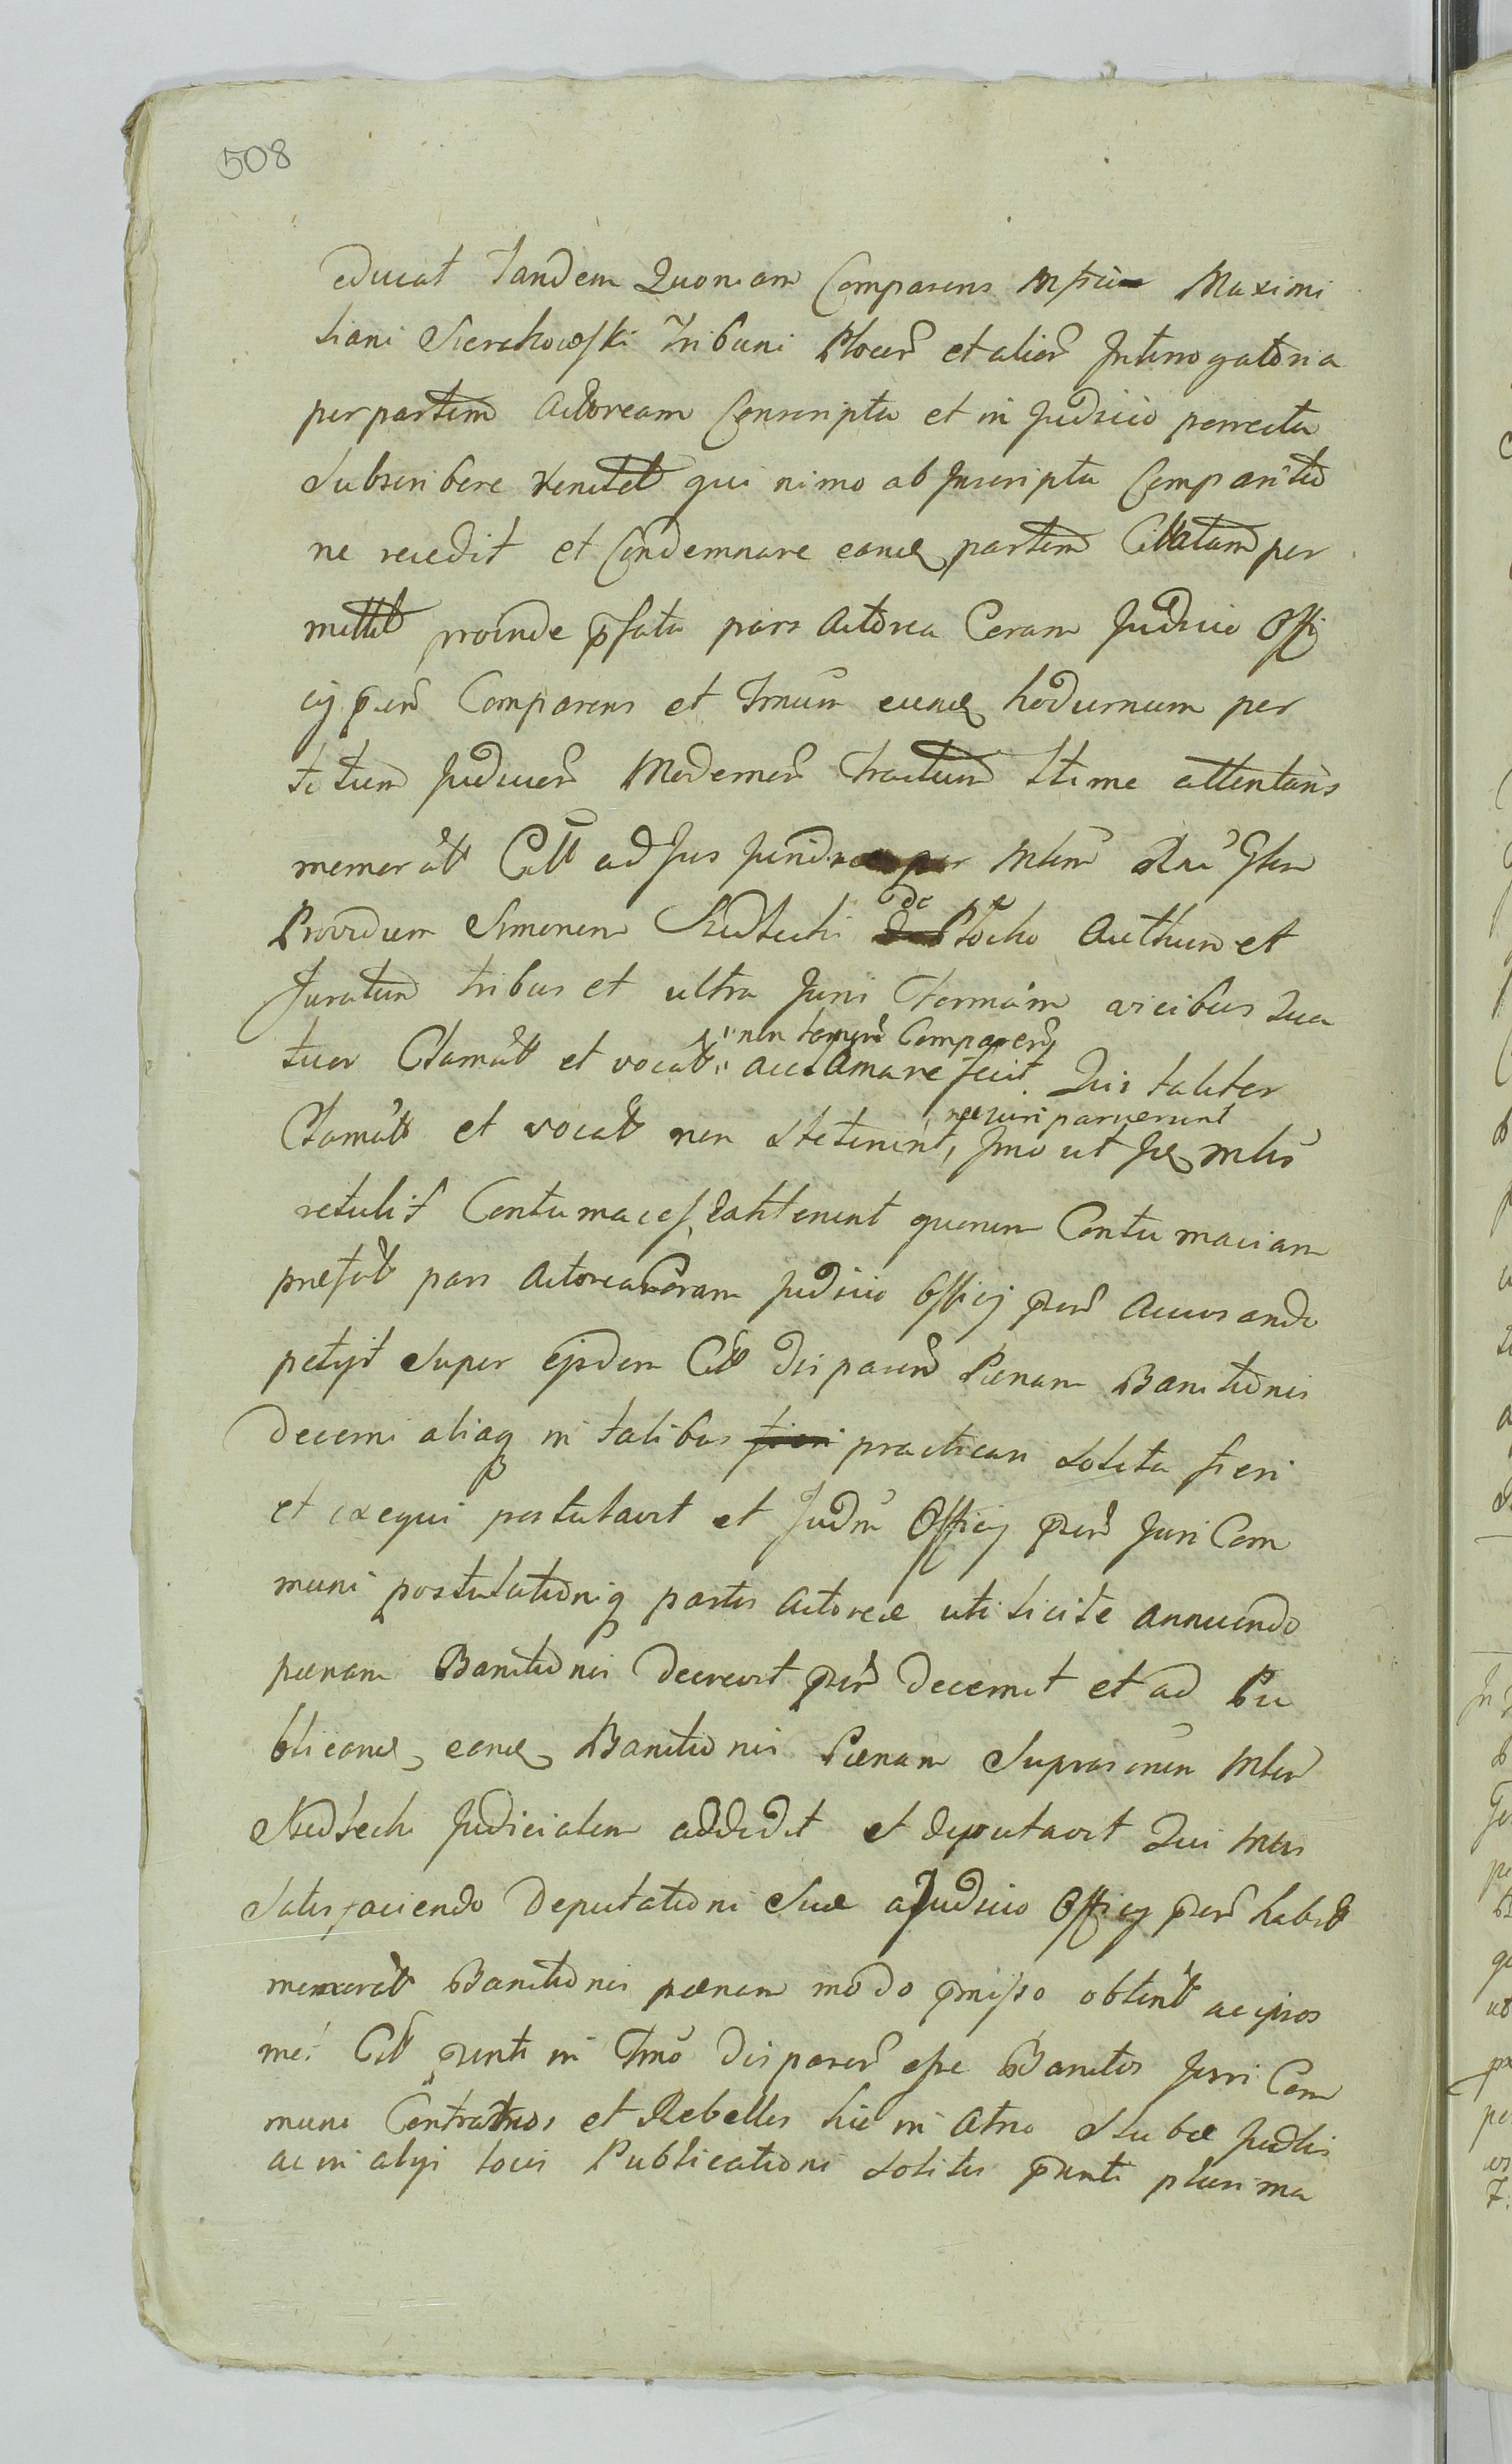 508
educat tandem Quoniam Comparens Maximi
liani Sierakowski Tribuni Plocen et alior Interrogatoria
per partem Actoream Conscripta et in Judicio porrecta
Subscribere renitet qui nimo ab Inscripta Comparitio
ne recedit et Condemnare eand partem Cittatam per
mittit proinde pfata pars Actorea Coram Judicio Offi
cij psen Comparens et Tmum eund hodiernum per
totum Judicior Modernor Tractum ttime attentans
memoratt Citt ad Jus Mlem Rni Gtem
Providum Simonem Szedlecki de Plocko Authum et
Juratum tribus et ultra Juris Formam vicibus Qua
tuor Clamatt et vocatt "non tamen Comparen" acclamare fecit Qui taliter
Clamatt et vocatt non Steterint, nec Juri paruerunt Imo ut Id Mlis
retulit Contumaces extiterint quorum Contumaciam
prefat pars Actorea Coram Judicio Officij psen Accusando
petijt Super ijsdem Citt disparen Pænam Banitionis
Decerni aliaq in talibus fieri practicari Solita fieri
et exequi postulavit et Judm Officij psen Juri Com
muni postulationiq partis Actoreæ uti licite annuendo
pænam Banitionis decrevit psen decernit et ad Pu
blicand eand Banitionis Pænam Suprascrien Mlem
Szedlecki Judicialem addidit et deputavit Qui Mlis
Satisfaciendo Deputationi Suæ a Judicio Officij psen habit
memoratt Banitionis pænam modo pmisso obtent ac ipsos
met Citt psenti in Tmo disparen esse Banitos Juri Com
muni Contrarios et Rebelles hic in Atrio Stubæ Judlis
ac in alijs locis Publicationi Solitis psenti plurima